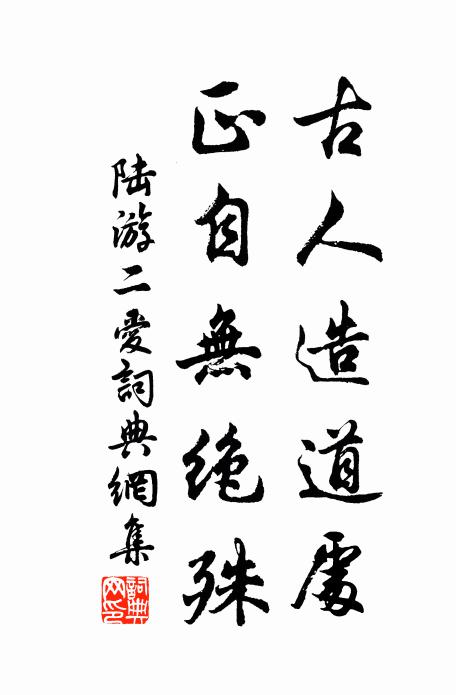 古人造道處
正自無絕殊
陸游二愛詞典網集
詞典網印